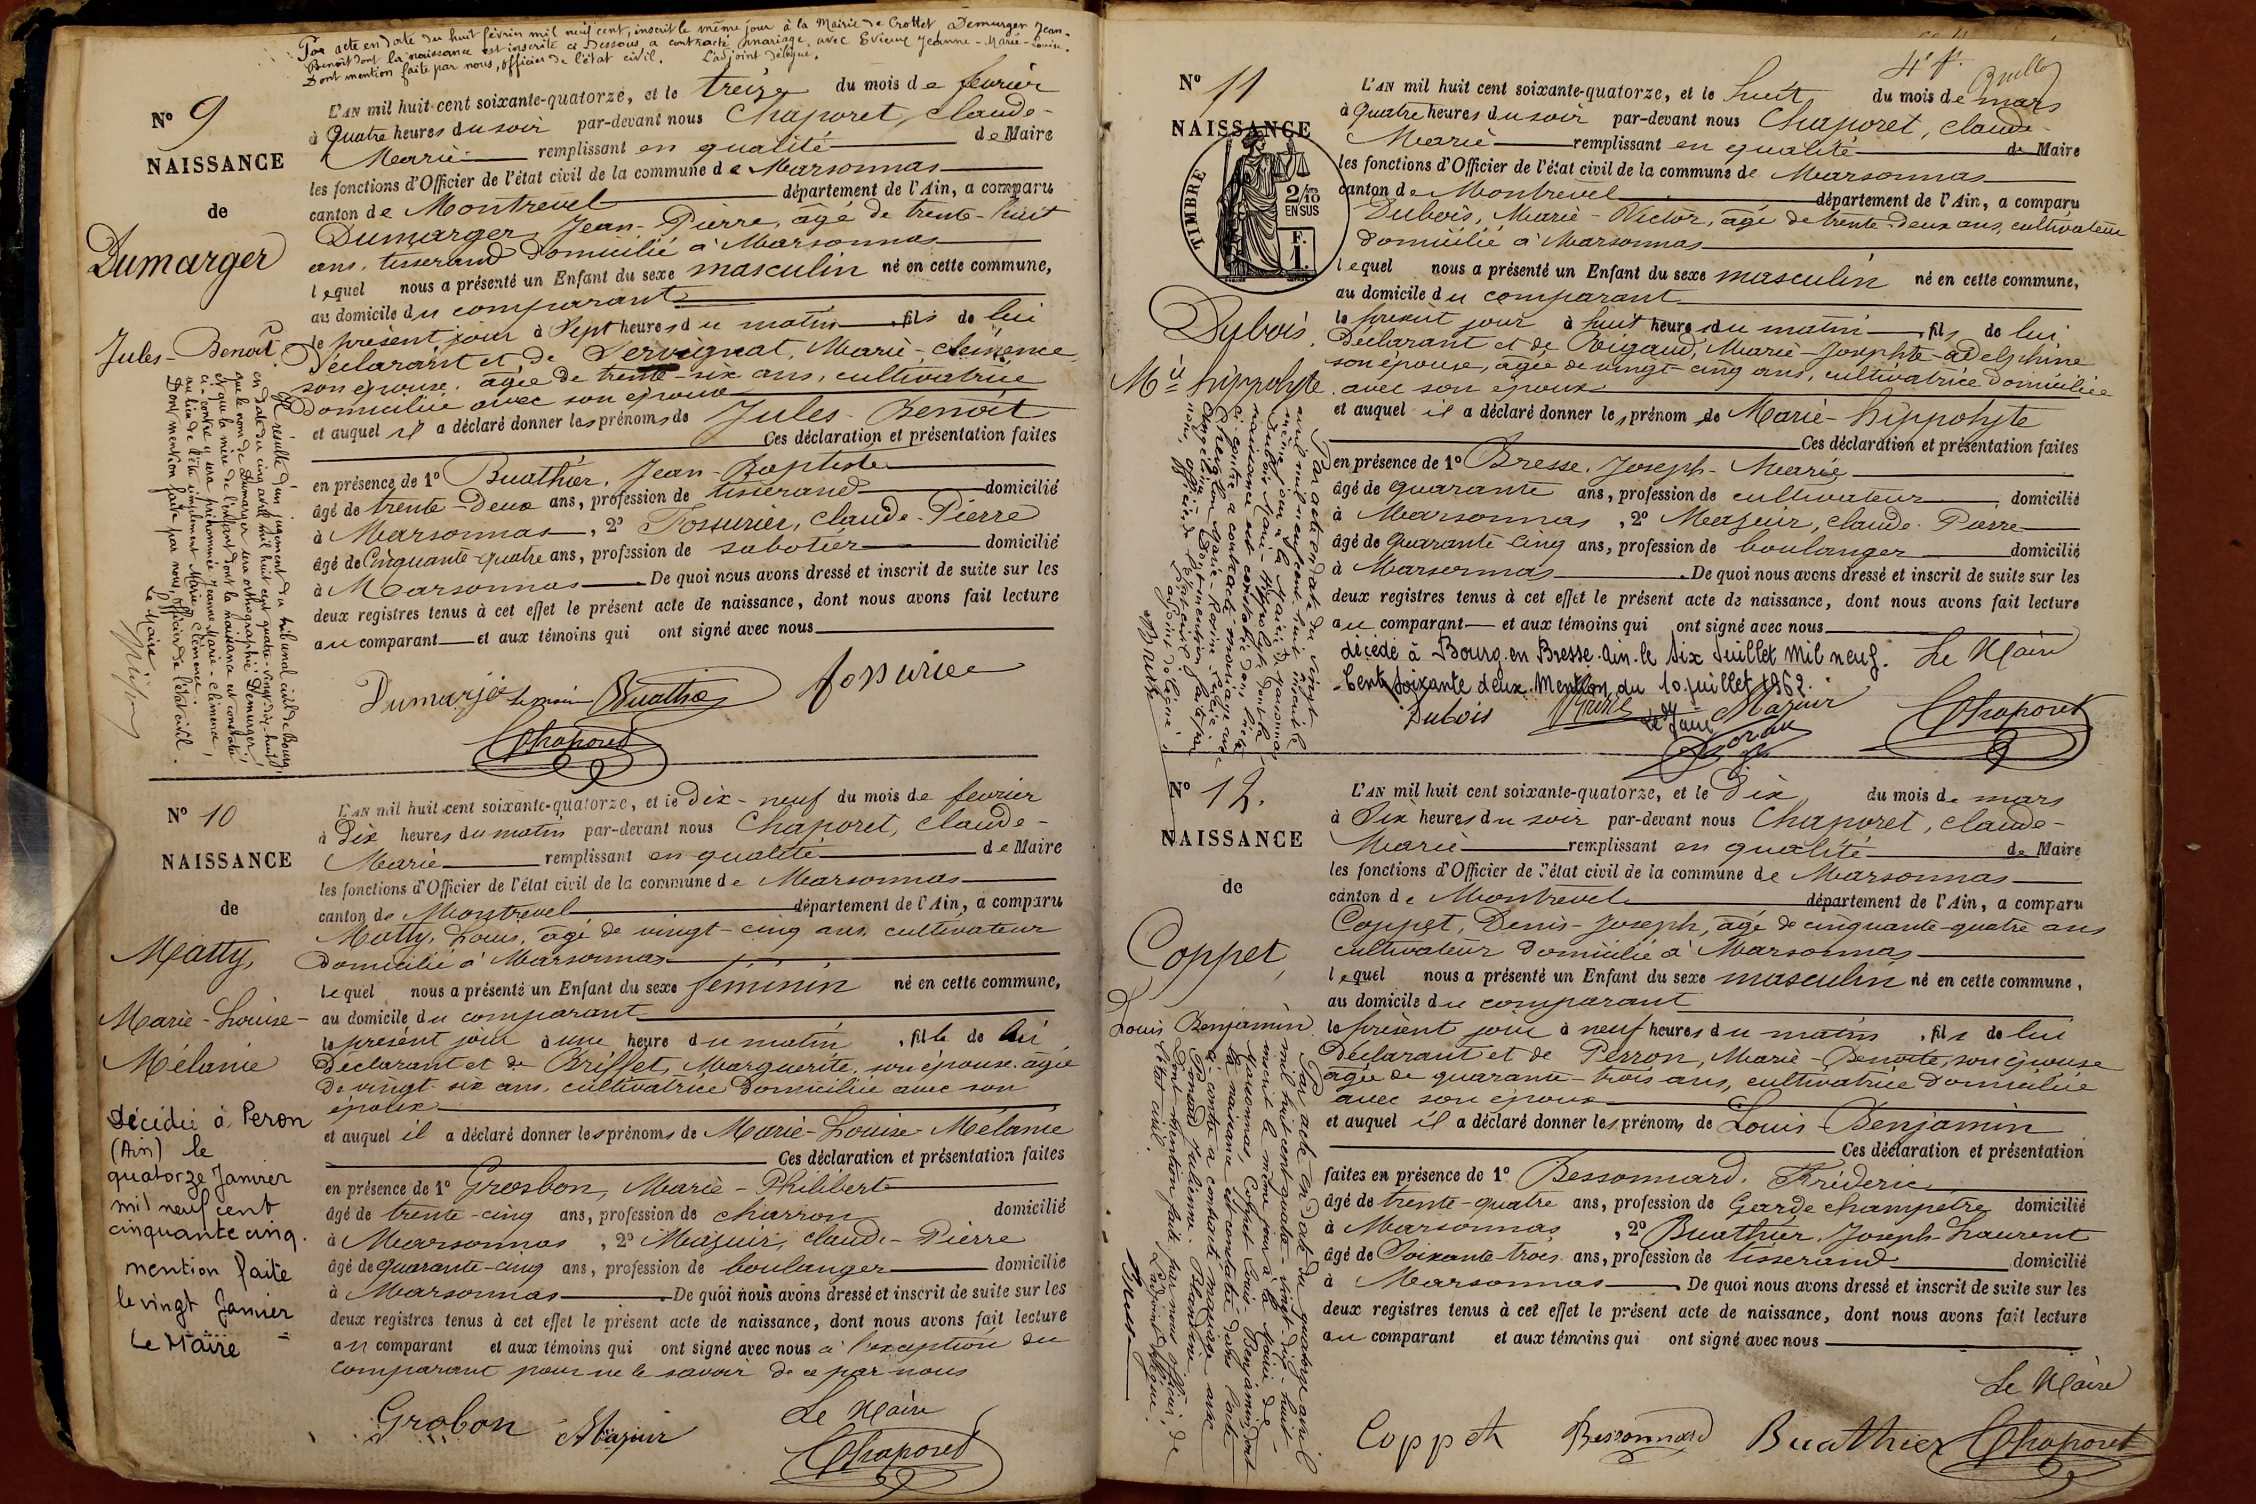 Par acte en date du huit février mil neuf cent, inscrit le même jour à la Mairie de Crottet Demurger Jean-
Benoit dont la naissance est inscrite ci dessous a contracté mariage avec Jeanne-Marie-Louise.
Dont mention faite par nous, officier de l'état civil. L'adjoint délégué.
N° 9
NAISSANCE
de
Dumarger
Jules-Benoît
L'AN mil huit cent soixante-quatorze, et le treize du mois de février
à Quatre heures du soir par-devant nous Chaporet, Claude-
Marie remplissant en qualité de Maire
les fonctions d'Officier de l'état civil de la commune de Marsonnas
canton de Montrevel département de l'Ain, a comparu
Dumarger, Jean-Pierre, âgé de trente-huit
ans, tisserand domicilié à Marsonnas
lequel nous a présenté un Enfant du sexe masculin né en cette commune,
au domicile du comparant
le présent jour à Sept heures du matin, fils de lui
Déclarant et de Servignat, Marie-Clémence
son épouse, âgée de trente-six ans, cultivatrice
domiciliée avec son époux
et auquel il a déclaré donner les prénoms de Jules-Benoît
Ces déclaration et présentation faites
en présence de 1° Buathier, Jean-Baptiste
âgé de trente-deux ans, profession de tisserand domicilié
à Marsonnas, 2° Fossurier, Claude-Pierre
âgé de Cinquante-quatre ans, profession de sabotier domicilié
à Marsonnas. De quoi nous avons dressé et inscrit de suite sur les
deux registres tenus à cet effet le présent acte de naissance, dont nous avons fait lecture
au comparant et aux témoins qui ont signé avec nous
Il résulte d'un jugement du tribunal civil de Bourg,
en date du cinq avril mil huit cent quatre-vingt-dix-huit,
que le nom de Dumarger sera orthographié "Demurger",
et que la mère de l'enfant dont la naissance est constatée
ci-contre sera prénommée Jeanne Marie-Clémence,
au lieu de l'être simplement Marie-Clémence.
Dont mention faite par nous, officier de l'état civil.
Le Maire
Dumarje Le maire Buathie fossurier
Chaporet
N° 10
NAISSANCE
de
Matty,
Marie-Louise-
Mélanie
L'AN mil huit cent soixante-quatorze, et le dix-neuf du mois de février
à Dix heures du matin par-devant nous Chaporet, Claude-
Marie remplissant en qualité de Maire
les fonctions d'Officier de l'état civil de la commune de Marsonnas
canton de Montrevel département de l'Ain, a comparu
Matty, Louis, âgé de vingt-cinq ans, cultivateur
domicilié à Marsonnas
lequel nous a présenté un Enfant du sexe féminin né en cette commune,
au domicile du comparant
le présent jour à une heure du matin, fille de lui
Déclarant et de Briffet, Marguerite, son épouse, âgée
de vingt-six ans, cultivatrice domiciliée avec son
époux
et auquel il a déclaré donner les prénoms de Marie-Louise-Mélanie
Ces déclaration et présentation faites
en présence de 1° Grosbon, Marie-Philibert
âgé de trente-cinq ans, profession de charron domicilié
à Marsonnas, 2° Mazuir, Claude-Pierre
âgé de quarante-cinq ans, profession de boulanger domicilié
à Marsonnas. De quoi nous avons dressé et inscrit de suite sur les
deux registres tenus à cet effet le présent acte de naissance, dont nous avons fait lecture
au comparant et aux témoins qui ont signé avec nous à l'exception du
comparant pour ne le savoir de ce par nous
Décédée à Peron
(Ain) le
quatorze Janvier
mil neuf cent
cinquante cinq.
mention faite
le vingt Janvier
Le Maire
Grobon Mazuir Le Maire
Chaporet
4e f.
N° 11
NAISSANCE
TIMBRE
2/10
EN SUS
F.
1.
Dubois,
Mie hippolyte
L'AN mil huit cent soixante-quatorze, et le huit du mois de mars
à Quatre heures du soir par-devant nous Chaporet, Claude-
Marie remplissant en qualité de Maire
les fonctions d'Officier de l'état civil de la commune de Marsonnas
canton de Montrevel département de l'Ain, a comparu
Dubois, Marie-Victor, âgé de trente-deux ans, cultivateur
domicilié à Marsonnas
lequel nous a présenté un Enfant du sexe masculin né en cette commune,
au domicile du comparant
le présent jour à huit heures du matin, fils de lui
Déclarant et de Rigaud, Marie-Josephte-adelphine
son épouse, âgée de vingt-cinq ans, cultivatrice domiciliée
avec son époux
et auquel il a déclaré donner les prénom de Marie-hippolyte
Ces déclaration et présentation faites
en présence de 1° Bresse, Joseph-Marie
âgé de quarante ans, profession de cultivateur domicilié
à Marsonnas, 2° Mazuir, Claude-Pierre
âgé de Quarante-Cinq ans, profession de boulanger domicilié
à Marsonnas. De quoi nous avons dressé et inscrit de suite sur les
deux registres tenus à cet effet le présent acte de naissance, dont nous avons fait lecture
au comparant et aux témoins qui ont signé avec nous
décédé à Bourg-en-Bresse-Ain-le Six Juillet Mil neuf. Le Maire
Cent soixante deux. Mention du 10 juillet 1962.
Dubois Le Maire Mazuir Chaporet
N° 12.
NAISSANCE
de
Coppet,
Louis Benjamin
L'AN mil huit cent soixante-quatorze, et le Dix du mois de mars
à Six heures du soir par-devant nous Chaporet, Claude-
Marie remplissant en qualité de Maire
les fonctions d'Officier de l'état civil de la commune de Marsonnas
canton de Montrevel département de l'Ain, a comparu
Coppet, Denis-Joseph, âgé de cinquante-quatre ans
cultivateur domicilié à Marsonnas
lequel nous a présenté un Enfant du sexe masculin né en cette commune,
au domicile du comparant
le présent jour à neuf heures du matin, fils de lui
Déclarant et de Perron, Marie-Benoite, son épouse
âgée de quarante-trois ans, cultivatrice domiciliée
avec son époux
et auquel il a déclaré donner les prénoms de Louis-Benjamin
Ces déclaration et présentation
faites en présence de 1° Bessonnard, Fréderic
âgé de trente-quatre ans, profession de Garde champêtre domicilié
à Marsonnas, 2° Buathier, Joseph-Laurent
âgé de Soixante-trois ans, profession de tisserand domicilié
à Marsonnas De quoi nous avons dressé et inscrit de suite sur les
deux registres tenus à cet effet le présent acte de naissance, dont nous avons fait lecture
au comparant et aux témoins qui ont signé avec nous
Par acte en date du quatorze avril
mil huit cent quatre-vingt-dix-huit
inscrit le même jour à la Mairie de
Marsonnas, Coppet Louis Benjamin, dont
la naissance est constatée dans l'acte
ci-contre a contracté mariage avec
Julienne
Dont mention faite par nous officier de
l'état civil. L'adjoint délégué.
Le Maire
Coppet Bessonnard Buathier Chaporet